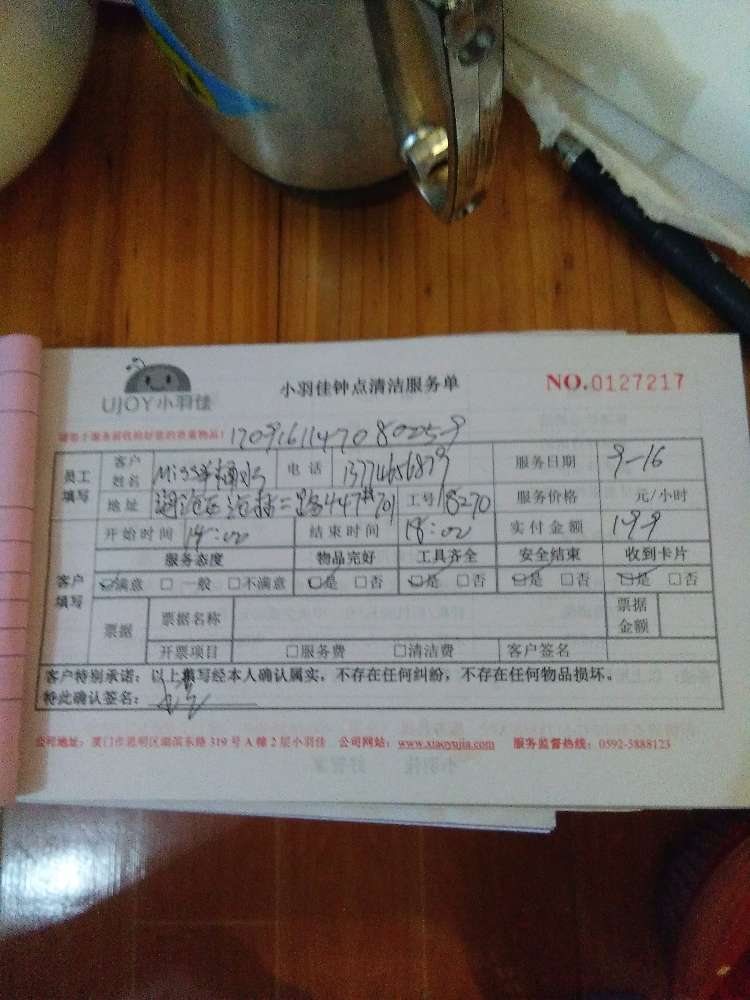 UJOY小羽佳 小羽佳钟点清洁服务单 NO.0127217
请您于服务前收拾好您的贵重物品! 1709161147080259
员工填写 客户姓名 Miss 电话 13774656879 服务日期 9-16
地址 447 701 工号 18270 服务价格 元/小时
开始时间 14:00 结束时间 18:00 实付金额 199
服务态度 物品完好 工具齐全 安全结束 收到卡片
客户填写 满意 □ 一般 □不满意 □是 □否 □是 □否 □是 □否 □是 □否
票据 票据名称 票据金额
开票项目 □服务费 □清洁费 客户签名
客户特别承诺：以上填写经本人确认属实，不存在任何纠纷，不存在任何物品损坏。
特此确认签名：
公司地址：厦门市思明区湖滨东路 319 号 A 幢 2 层小羽佳 公司网站：www.xiaoyujia.com 服务监督热线：0592-5888123